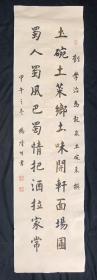 土碗土菜鄉土味開軒面場圃
蜀人蜀風巴蜀情把酒拉家常
甲午之冬